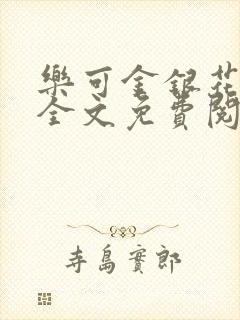 樂可金銀花
全文免費閱
寺島實郎